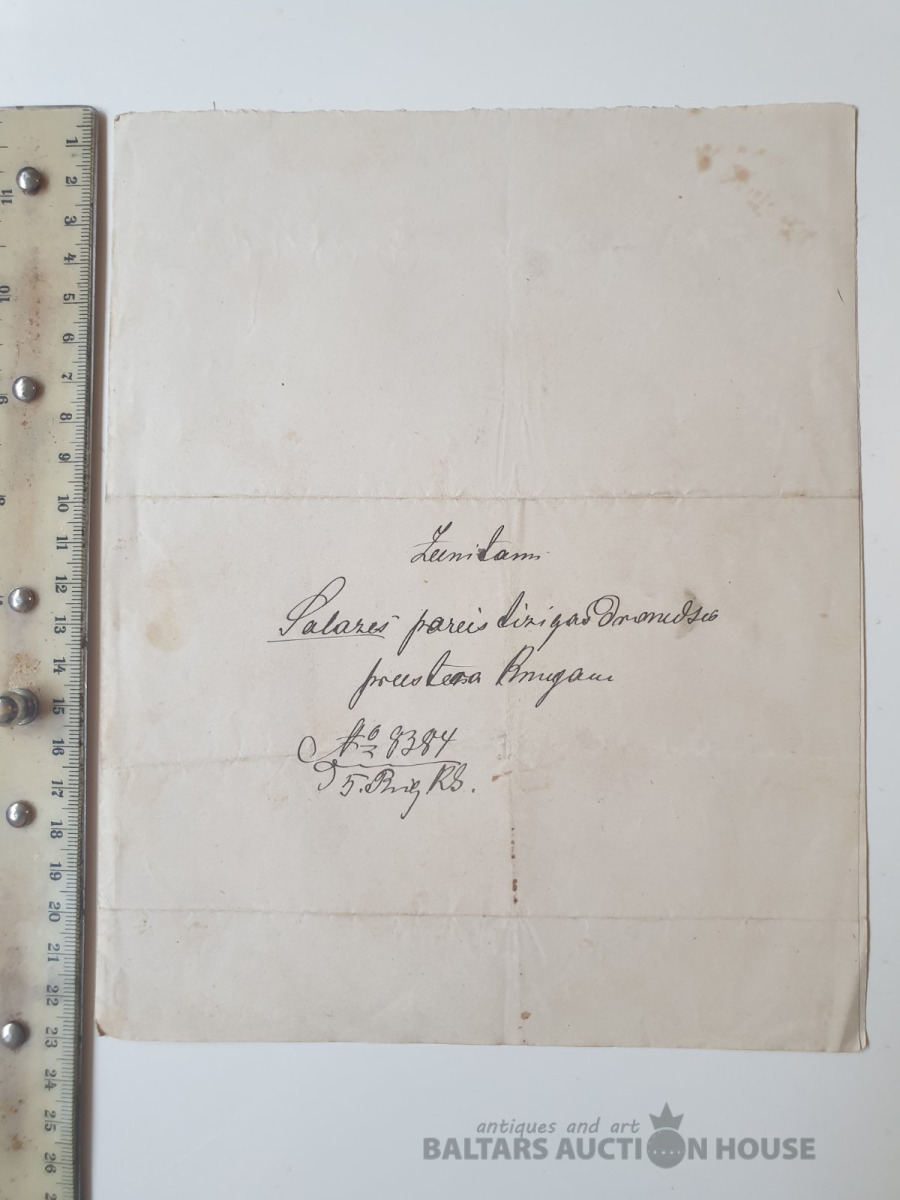 Zeenitam
Salazes pareistizigas Draudses
preestera Kungam
№ 8384
5. Aug
antiques and art
BALTARS AUCTION HOUSE
1 2 3 4 5 6 7 8 9 10 11 12 13 14 15 16 17 18 19 20 21 22 23 24 25 26